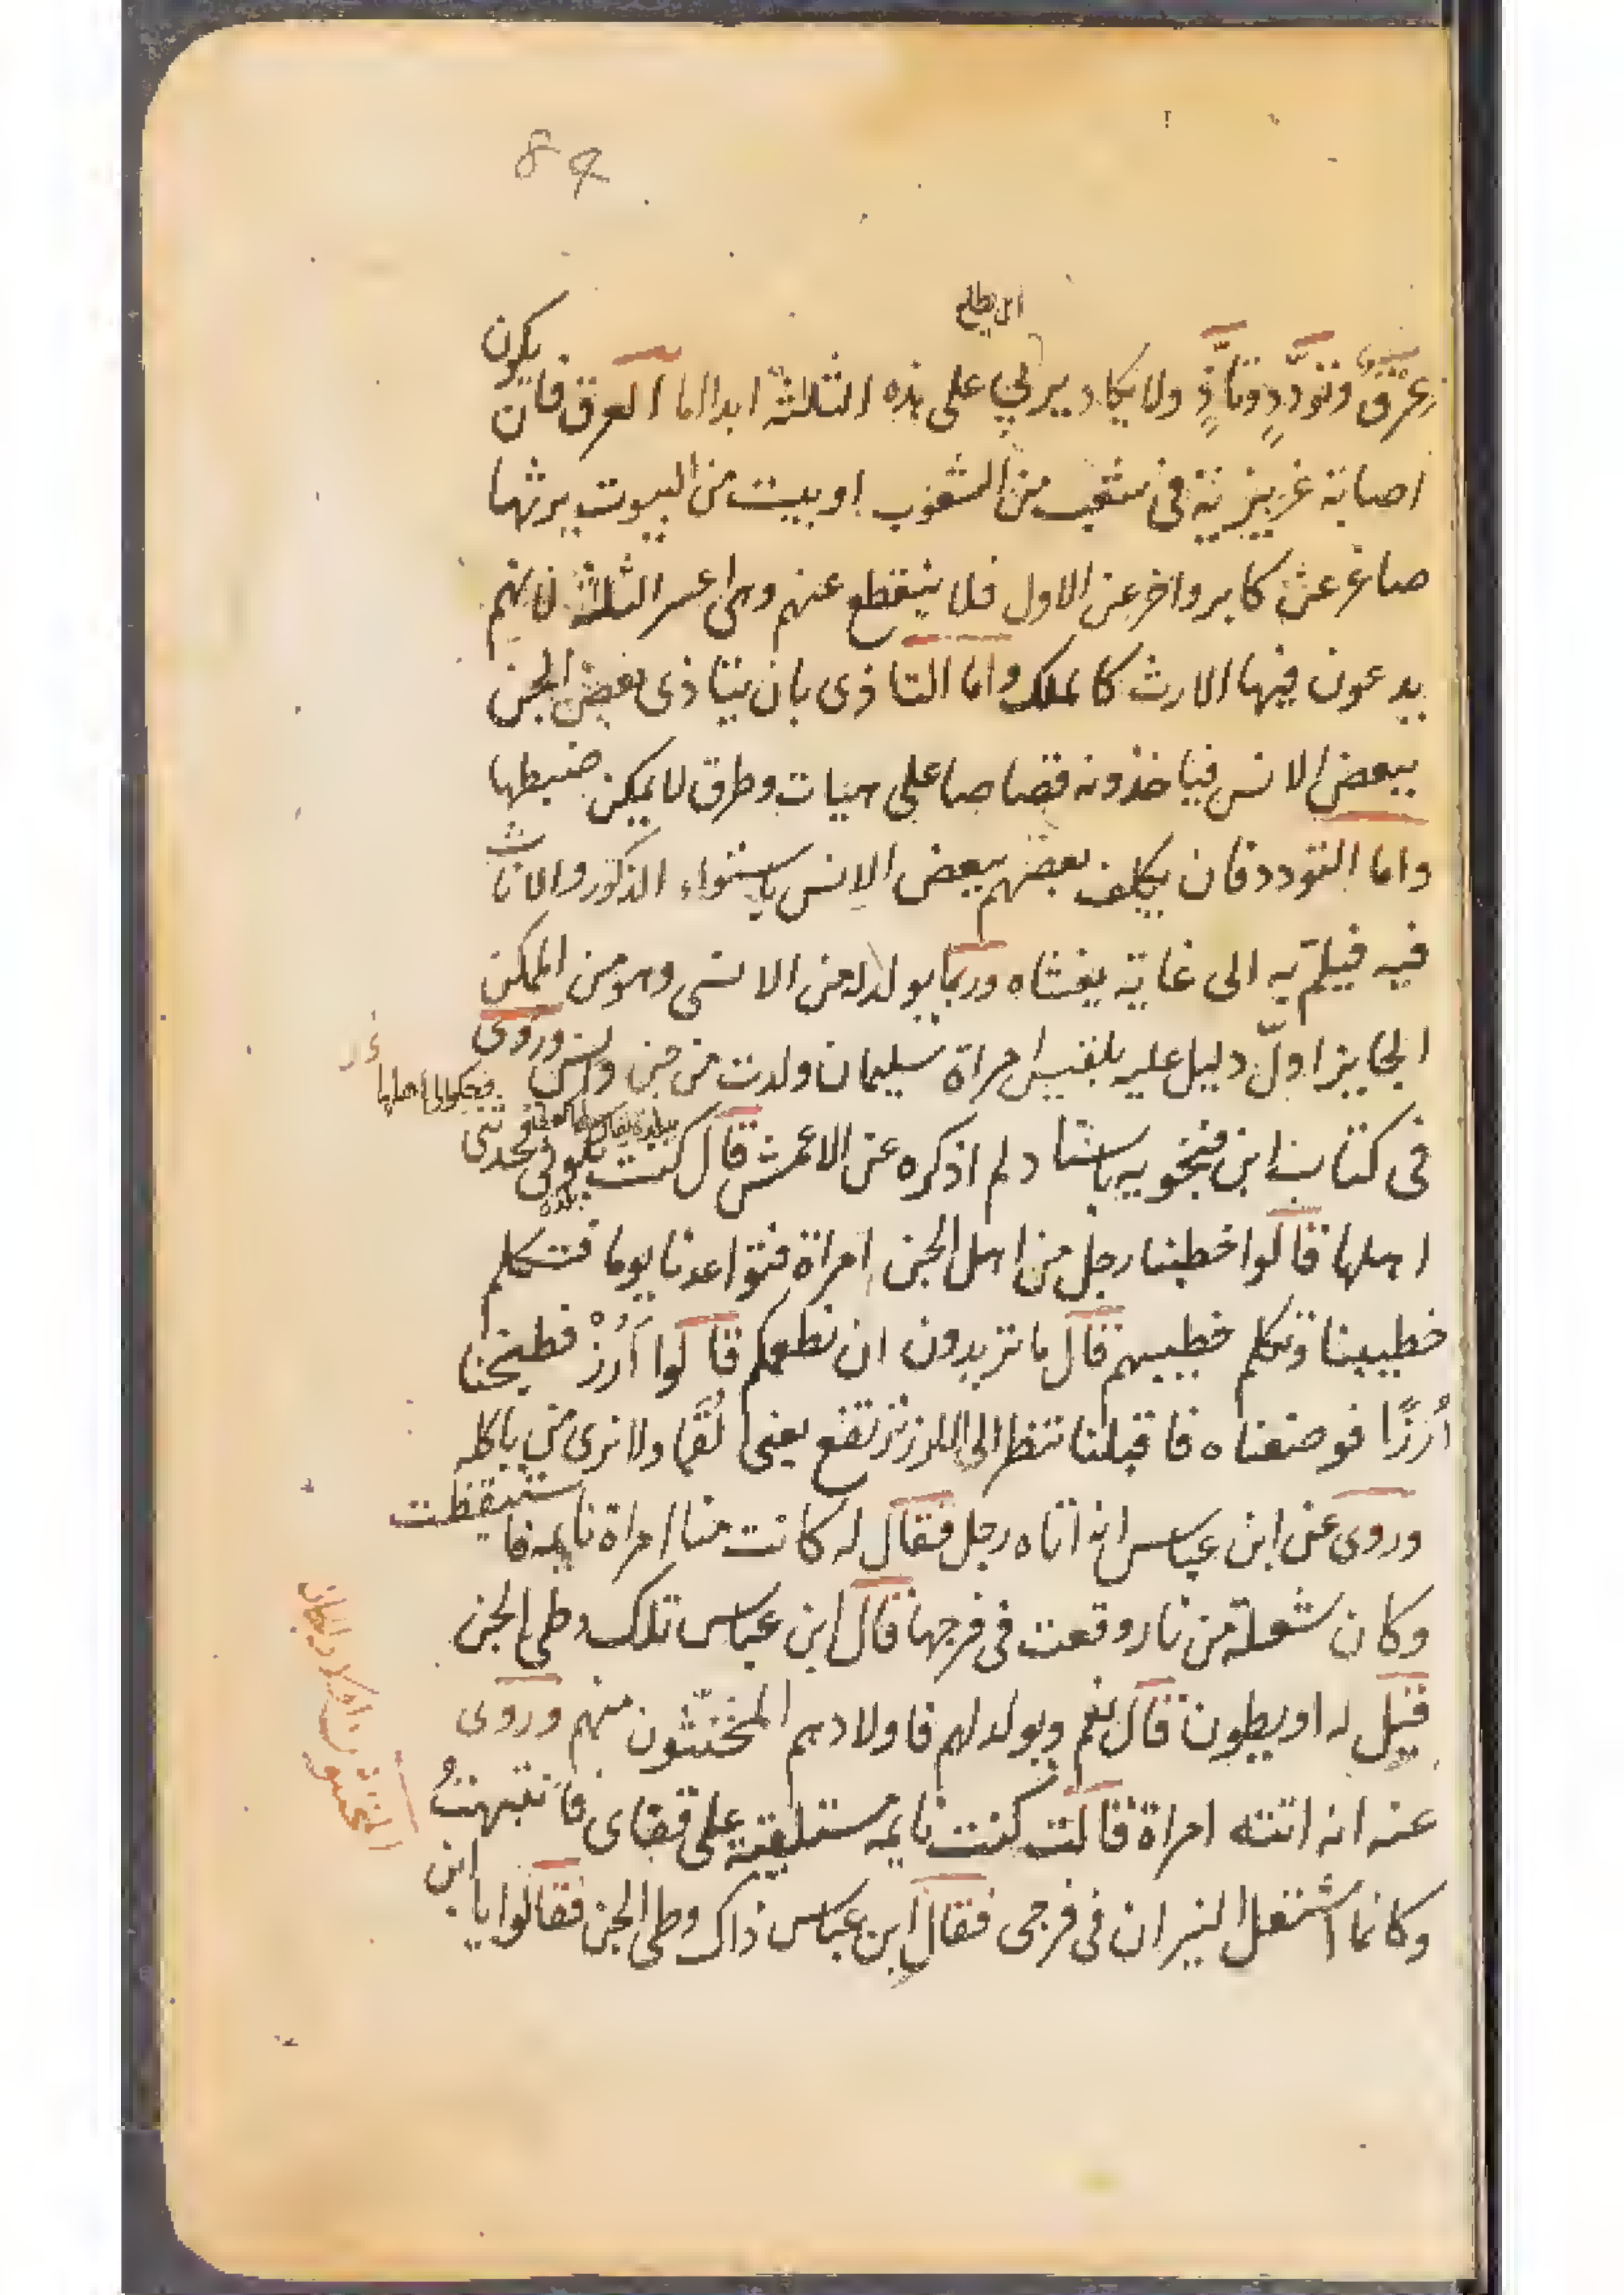 84
عرق وتودد وتاذ ولا يكاد يربي على هذه الثلثة ابدا اما العرق فان يكون
اصابة غريزية في شعب من الشعوب او بيت من البيوت يرثها
صاغر عن كابر واخر عن الاول فلا ينقطع عنهم وهى اعسر الثلثة لانهم
يدعون فيها الارث كالملك واما التاذى بان يتاذى بعض الجن
ببعض الانس فياخذونه قصاصا على هيات وطرق لا يمكن ضبطها
واما التودد فان يكلف بعضهم ببعض الانس باستواء الذكور والاناث
فيه فيلم به الى غاية يغشاه وربما يولد له من الانسى وهو من الممكن
الجايز اول دليل عليه بلقيس امراة سليمان ولدت من جن وانس وروى
فى كتاب ابن فنجويه باسناد لم اذكره عن الاعمش قال كنت بكوفى فحدثنى
اهلها قالوا خطبنا رجل من اهل الجن امراة فتواعدنا يوما فتكلم
خطيبنا وتكلم خطيبهم فقال ما تريدون ان نطعمكم قالوا اَرُزْ فطبخنا
اُرزًا فوضعناه فاقبلنا ننظر الى اللرز ترتفع يعنى لُقَما ولا نرى من ياكله
وروى عن ابن عباس انه اتاه رجل فقال له كانت منا امراة نايمه فاستيقظت
وكان شعلة من نار وقعت فى فرجها قال ابن عباس تلك وطى الجن
قيل له او يطون قال نعم ويولد لهم فاولادهم المخنثون منهم وروى
عنه انه اتته امراة فقالت كنت نايمه مستلقية على قفاى فانتبهتُ
وكانما اشتعل النيران فى فرجى فقال ابن عباس ذاك وطى الجن فقالوا يا ابن